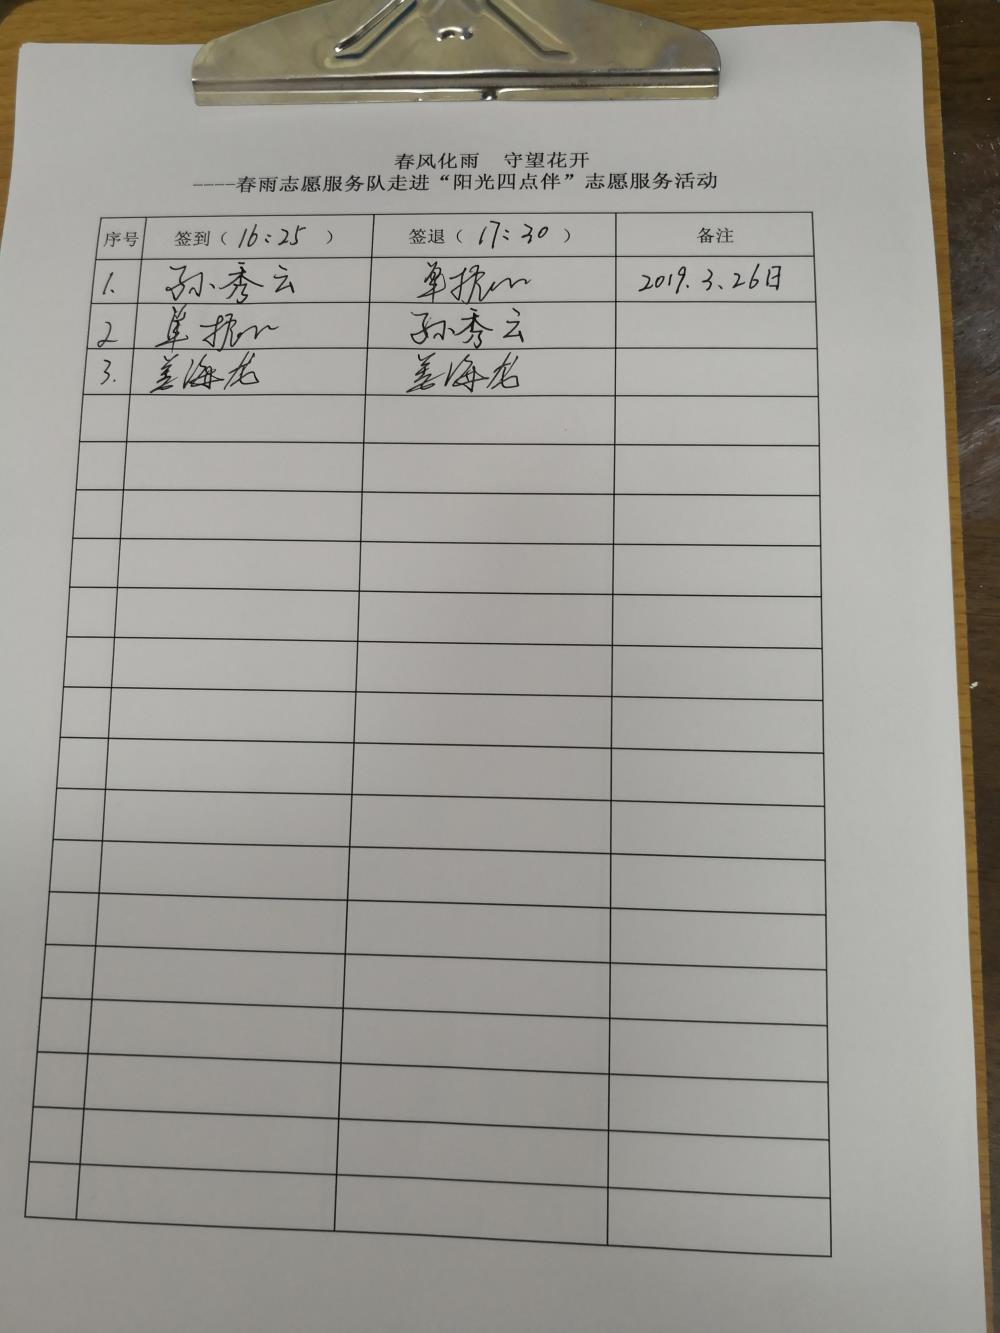 春风化雨 守望花开
----春雨志愿服务队走进“阳光四点伴”志愿服务活动
序号 签到（16:25） 签退（17:30） 备注
1. 孙秀云 单振 2019.3.26日
2 单振 孙秀云
3. 姜海龙 姜海龙